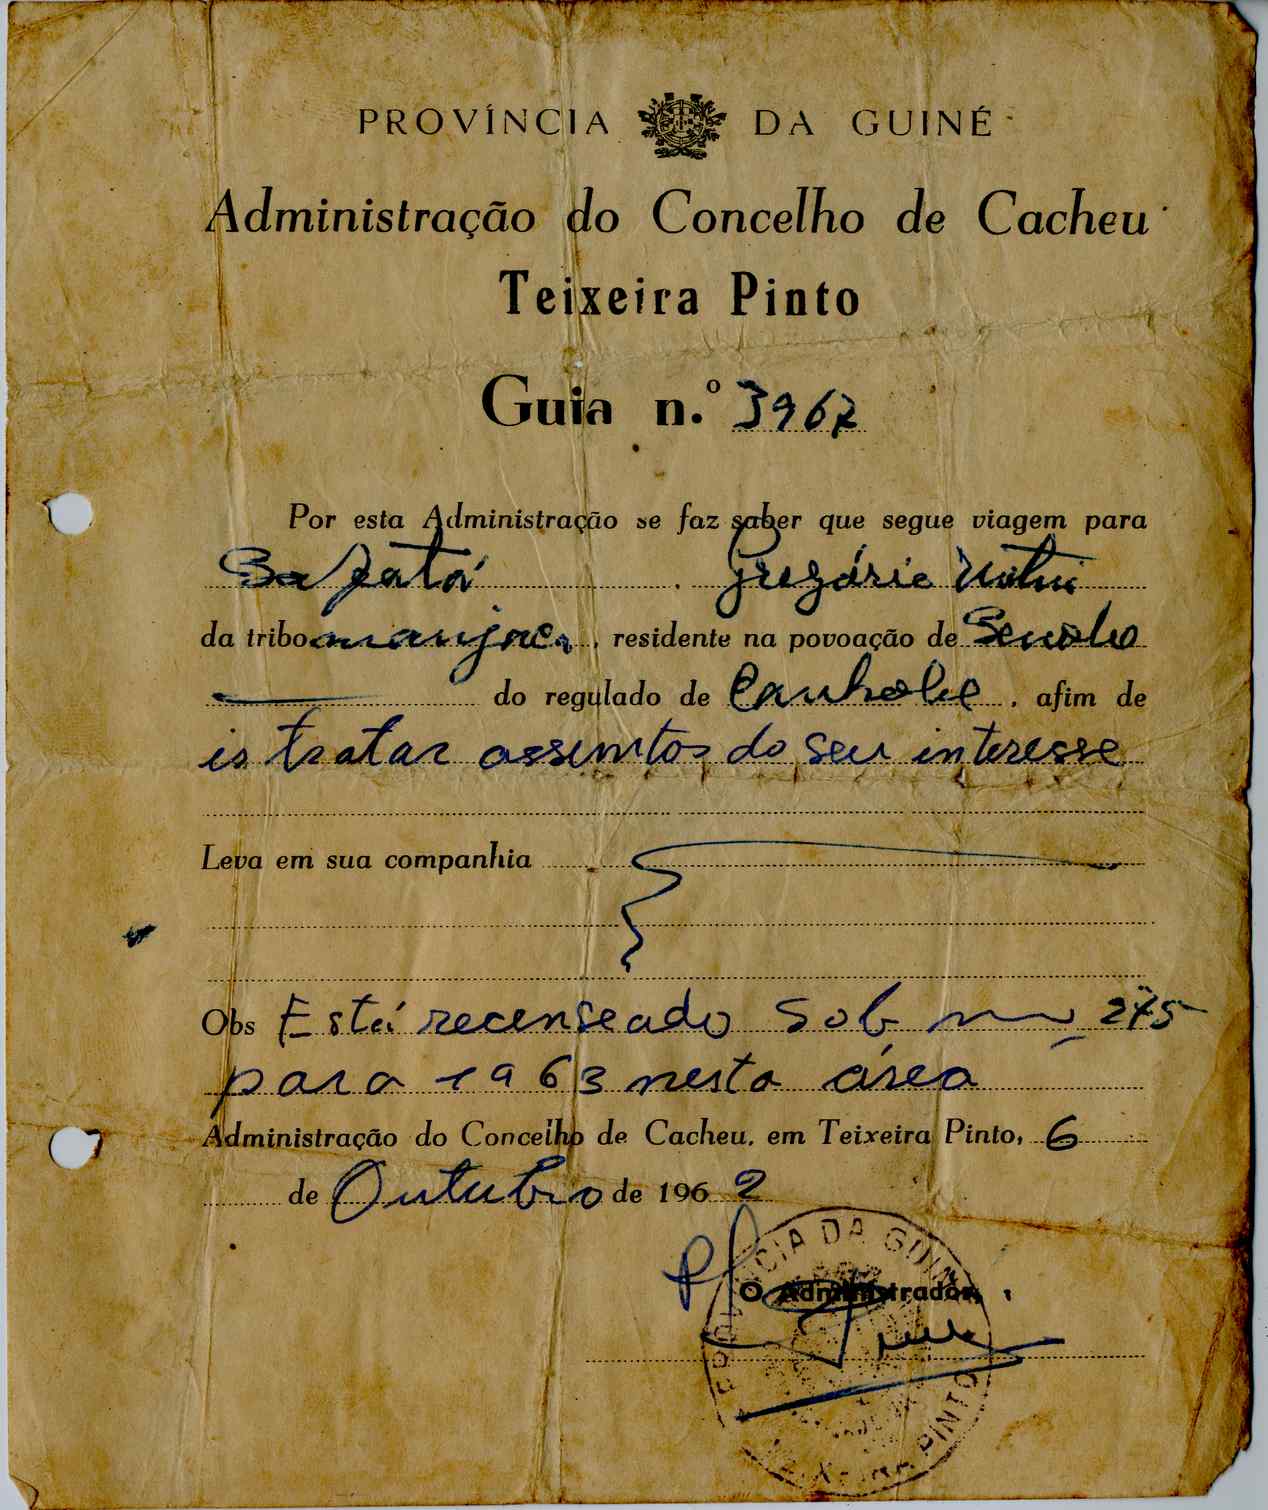 PROVÍNCIA DA GUINÉ
Administração do Concelho de Cacheu
Teixeira Pinto
Guia n.º 3967
Por esta Administração se faz saber que segue viagem para
Gregório
da tribo manjaca, residente na povoação de
do regulado de Canhobe, afim de
ir tratar assuntos do seu interesse
Leva em sua companhia
Obs Está recenseado sob nº 275
para 1963 nesta área
Administração do Concelho de Cacheu, em Teixeira Pinto, 6
de Outubro de 1962
O Administrador,
PROVÍNCIA DA GUINÉ
TEIXEIRA PINTO